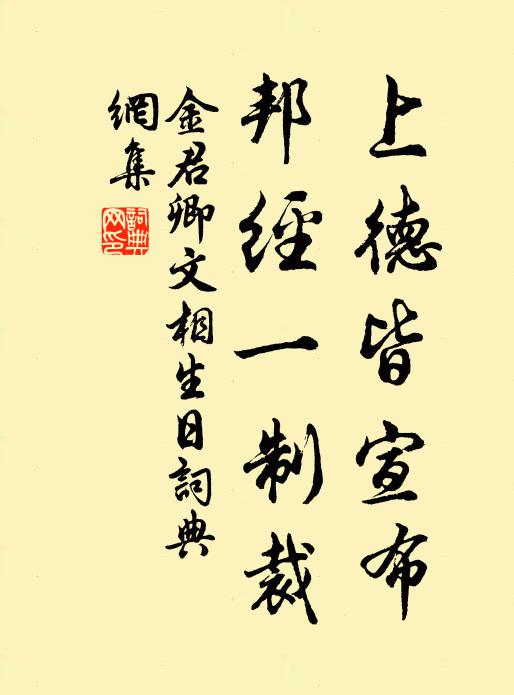 上德皆宣布
邦經一制裁
金君卿文相生日詞典
網集
詞典
网印